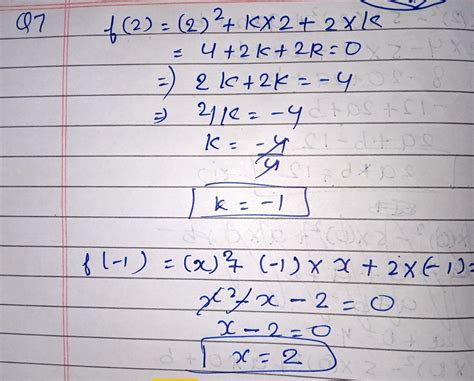 Q7 f(2) = (2)²+ K×2 + 2×k
= 4+2k+2k=0
⇒ 2k+2k = -4
⇒ 4k = -4
k = -4/4
k = -1
f(-1) = (x)²+ (-1) × x + 2×(-1)=
x²/-x - 2 = 0
x-2=0
x = 2